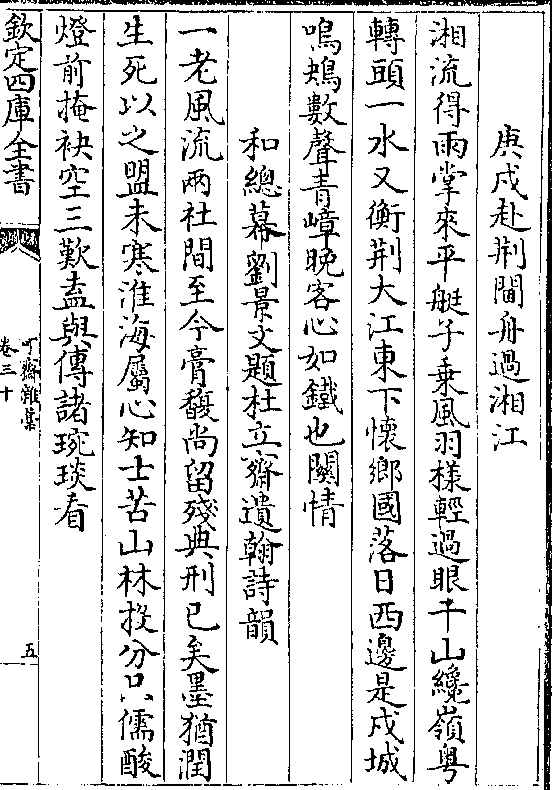 庚戌赴荆閫舟過湘江
湘流得雨掌來平艇子乗風羽樣輕過眼千山纔嶺粤
轉頭一水又衡荆大江東下懷鄉國落日西邊是戍城
嗚鴂數聲青嶂晚客心如鐵也關情
和總幕劉景文題杜立齋遺翰詩韻
一老風流兩社間至今膏馥尚留殘典刑已矣墨猶潤
生死以之盟未寒淮海屬心知士苦山林投分只儒酸
燈前掩袂空三歎盍與傳諸琬琰看
欽定四庫全書
可齋雜藁
卷三十
五